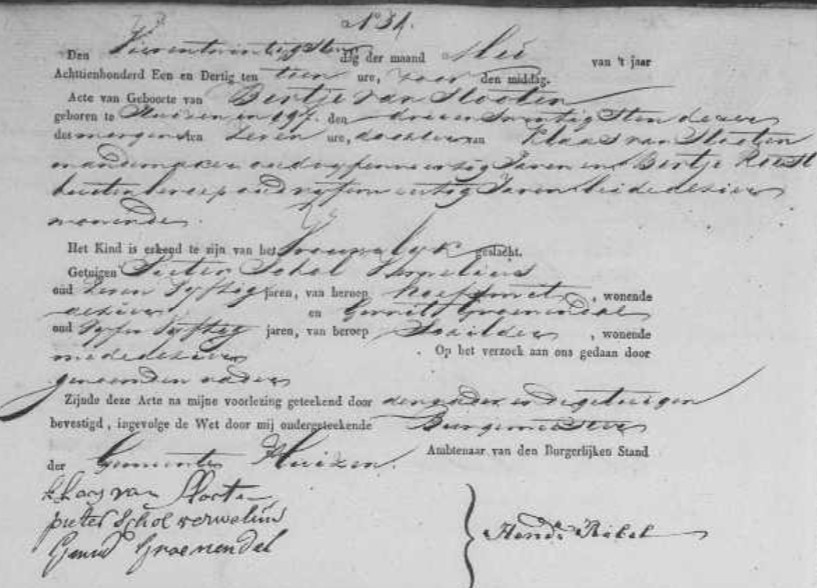 N° 31.
Den Vierentwintigsten dag der maand Mei van 't jaar
Achttienhonderd Een en Dertig ten tien ure, voor den middag.
Acte van Geboorte van Bertje van Slooten
geboren te Huizen in 197. den drieentwintigsten dezer
des morgens ten zeven ure, dochter van Klaas van Slooten
mandemaker oud vyfenveertig Jaren en Bertje Roest
buiten beroep oud vyfenveertig Jaren beide dezer
wonende.
Het Kind is erkend te zijn van het Vrouwelyk geslacht.
Getuigen Pieter Schol
oud zeven vyftig jaren, van beroep hoefsmet, wonende
en Gerrit Groenendal
oud vyfen vyftig jaren, van beroep Schilder, wonende
mede
Op het verzoek aan ons gedaan door
genoemden vader
Zijnde deze Acte na mijne voorlezing geteekend door den vader en de getuigen
bevestigd, ingevolge de Wet door mij ondergeteekende Burgemeester
Ambtenaar van den Burgerlijken Stand
der Gemeente Huizen.
klaas van Sloote
pieter Schol verwelius
Gerrid Groenendal
Hend: Rebel